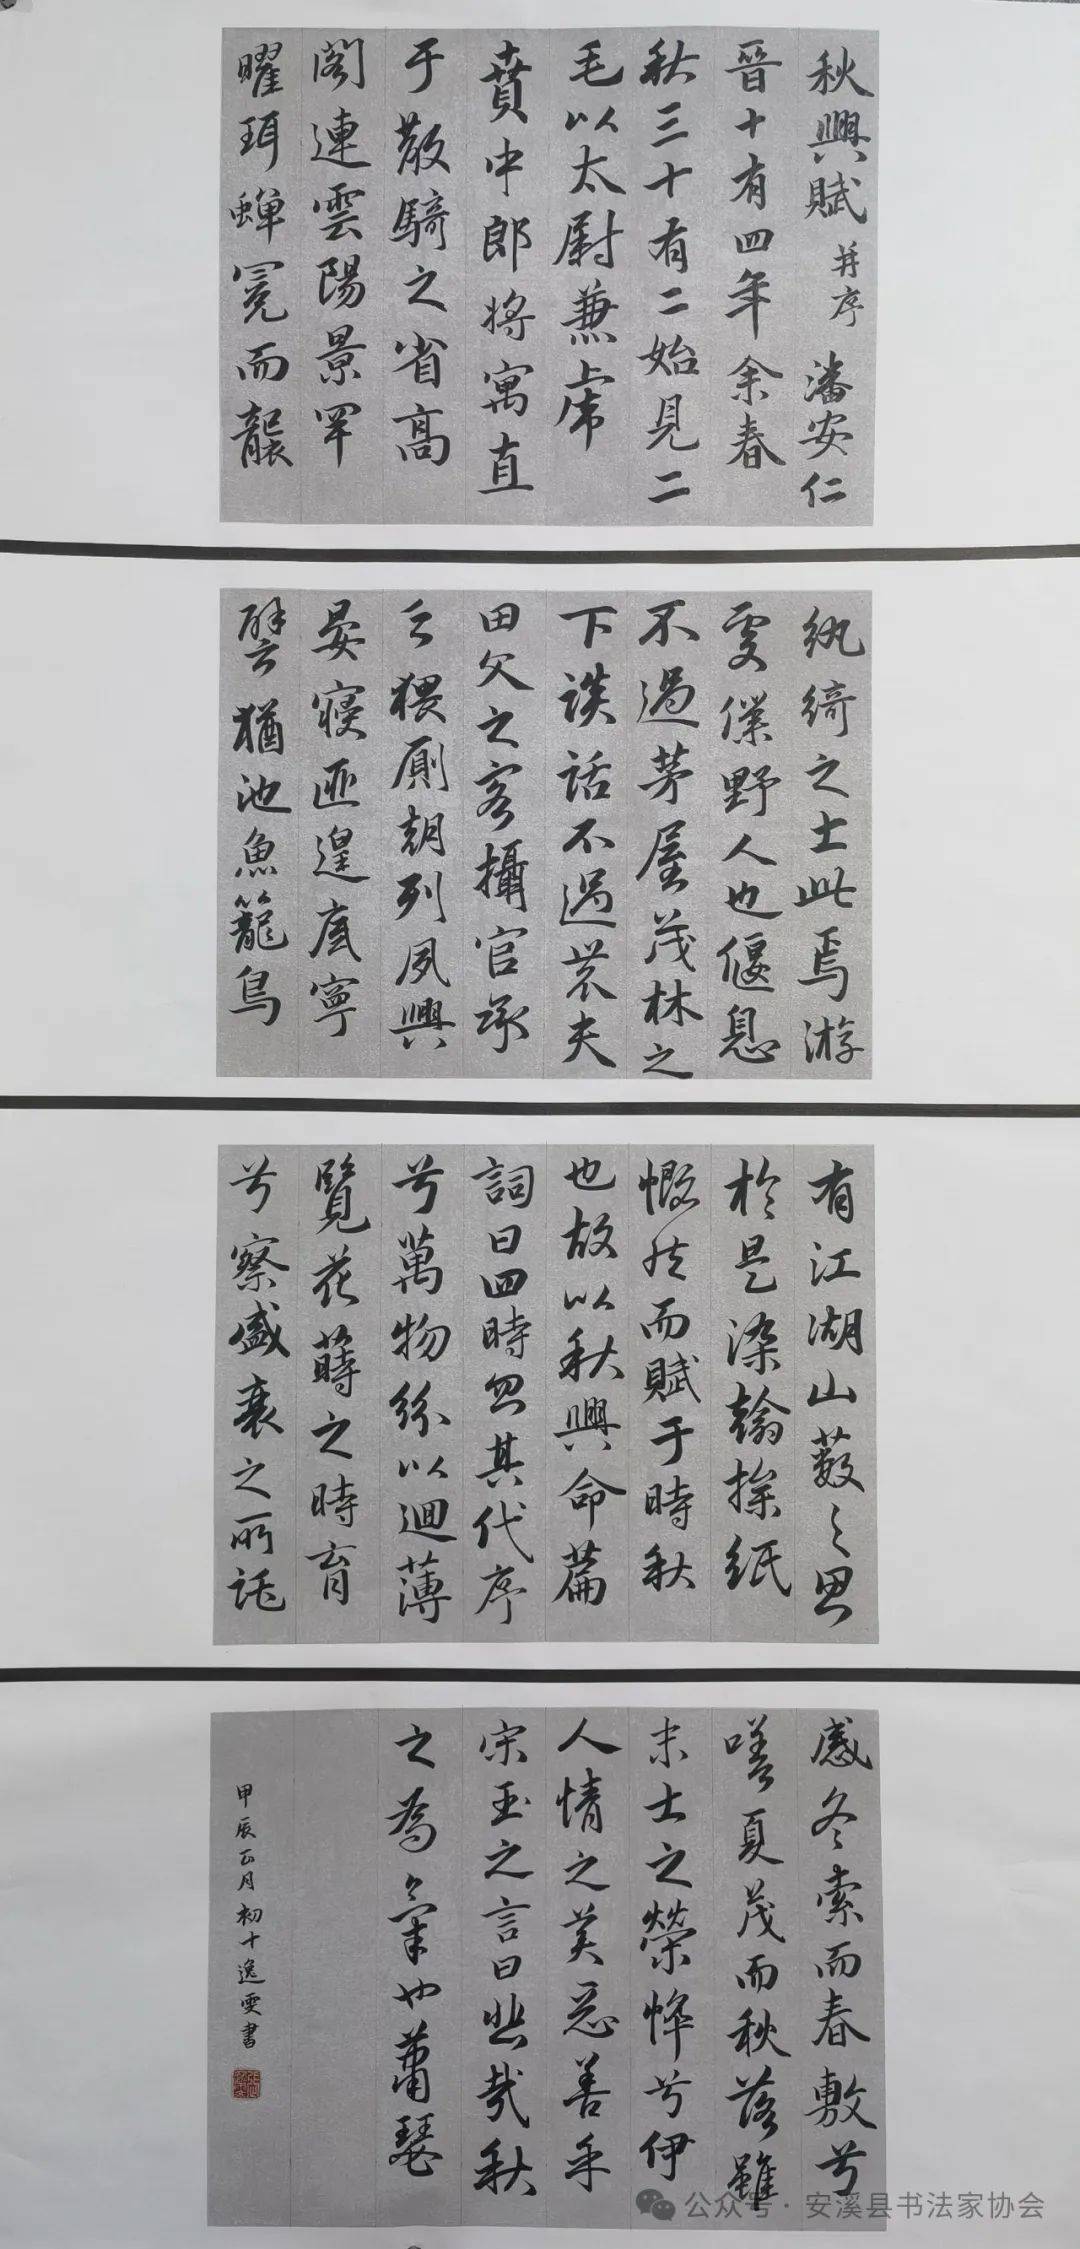 秋興賦 并序 潘安仁
晉十有四年余春
秋三十有二始見二
毛以太尉兼虎
賁中郎將寓直
于散騎之省高
閣連雲陽景罕
曜珥蟬冕而襲
紈綺之士此焉游
處僕野人也偃息
不過茅屋茂林之
下談話不過農夫
田父之客攝官承
乏猥廁朝列夙興
晏寢匪遑底寧
譬猶池魚籠鳥
有江湖山藪之思
於是染翰操紙
慨然而賦于時秋
也故以秋興命篇
詞曰四時忽其代序
兮萬物紛以迴薄
覽花蒔之時育
兮察盛衰之所託
感冬索而春敷兮
嗟夏茂而秋落雖
末士之榮悴兮伊
人情之美惡善乎
宋玉之言曰悲哉秋
之為氣也蕭瑟
甲辰正月初十逸雯書
公众号·安溪县书法家协会